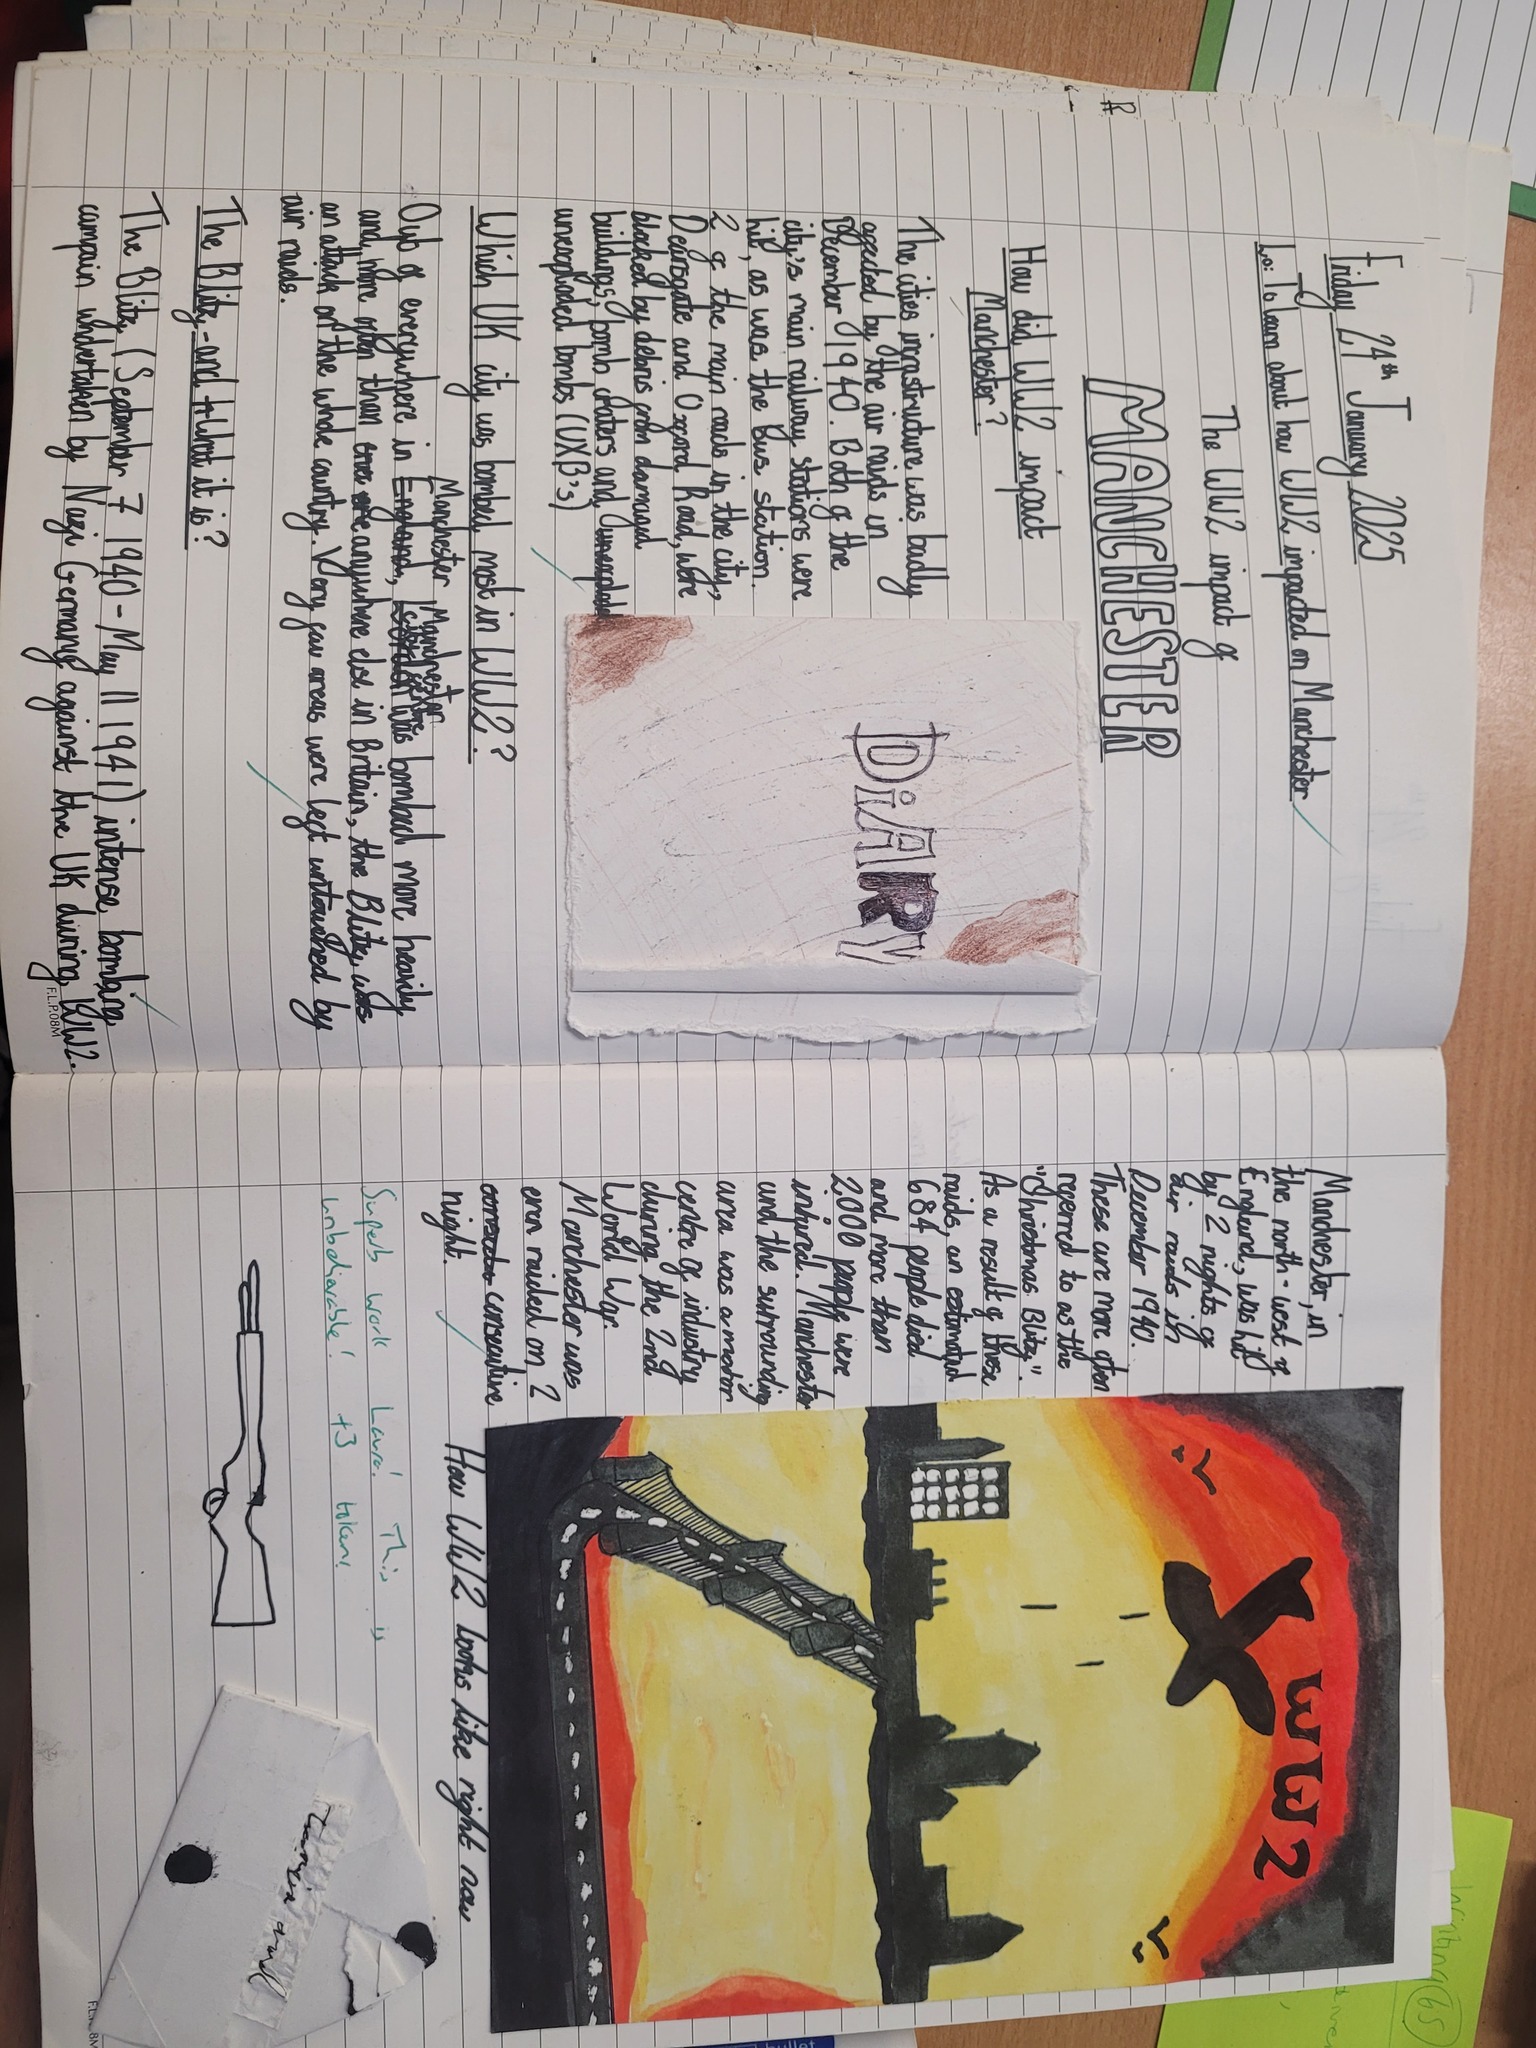 Friday 24th January 2025
Lo: To learn about how WW2 impacted on Manchester
The WW2 impact of
MANCHESTER
How did WW2 impact
Manchester?
The cities inrastructure was badly
affected by the air raids in
December 1940. Both of the
city's main railway stations were
hit, as was the Bus station.
2 of the main roads in the city,
Deansgate and Oxford Road, were
blocked by debris from damaged
buildings, bomb craters and
unexploded bombs (UXB's)
DiARY
Which UK city was bombed most in WW2?
Manchester Manchester
Out of everywhere in England, London was bombed more heavily
and more often than anywhere else in Britain, the Blitz was
an attack on the whole country. Very few areas were left untouched by
air raids.
The Blitz-and What it is?
The Blitz, (September 7 1940 - May 11 1941) intense bombing
campain undertaken by Nazi Germany against the UK during WW2.
F.L.P.08M
Manchester, in
the north-west of
England, was hit
by 2 nights of
air raids in
December 1940.
These are more often
referred to as the
"Christmas Blitz".
As a result of these
raids, an estamated
684 people died
and more than
2000 people were
injured. Manchester
and the surrounding
area was a
centre of industry
during the 2nd
World War.
Manchester was
even raided on 2
consecutive
night.
WW2
How WW2 looks like right now
Superb work Laura! This is
unbelievable! +3 token!